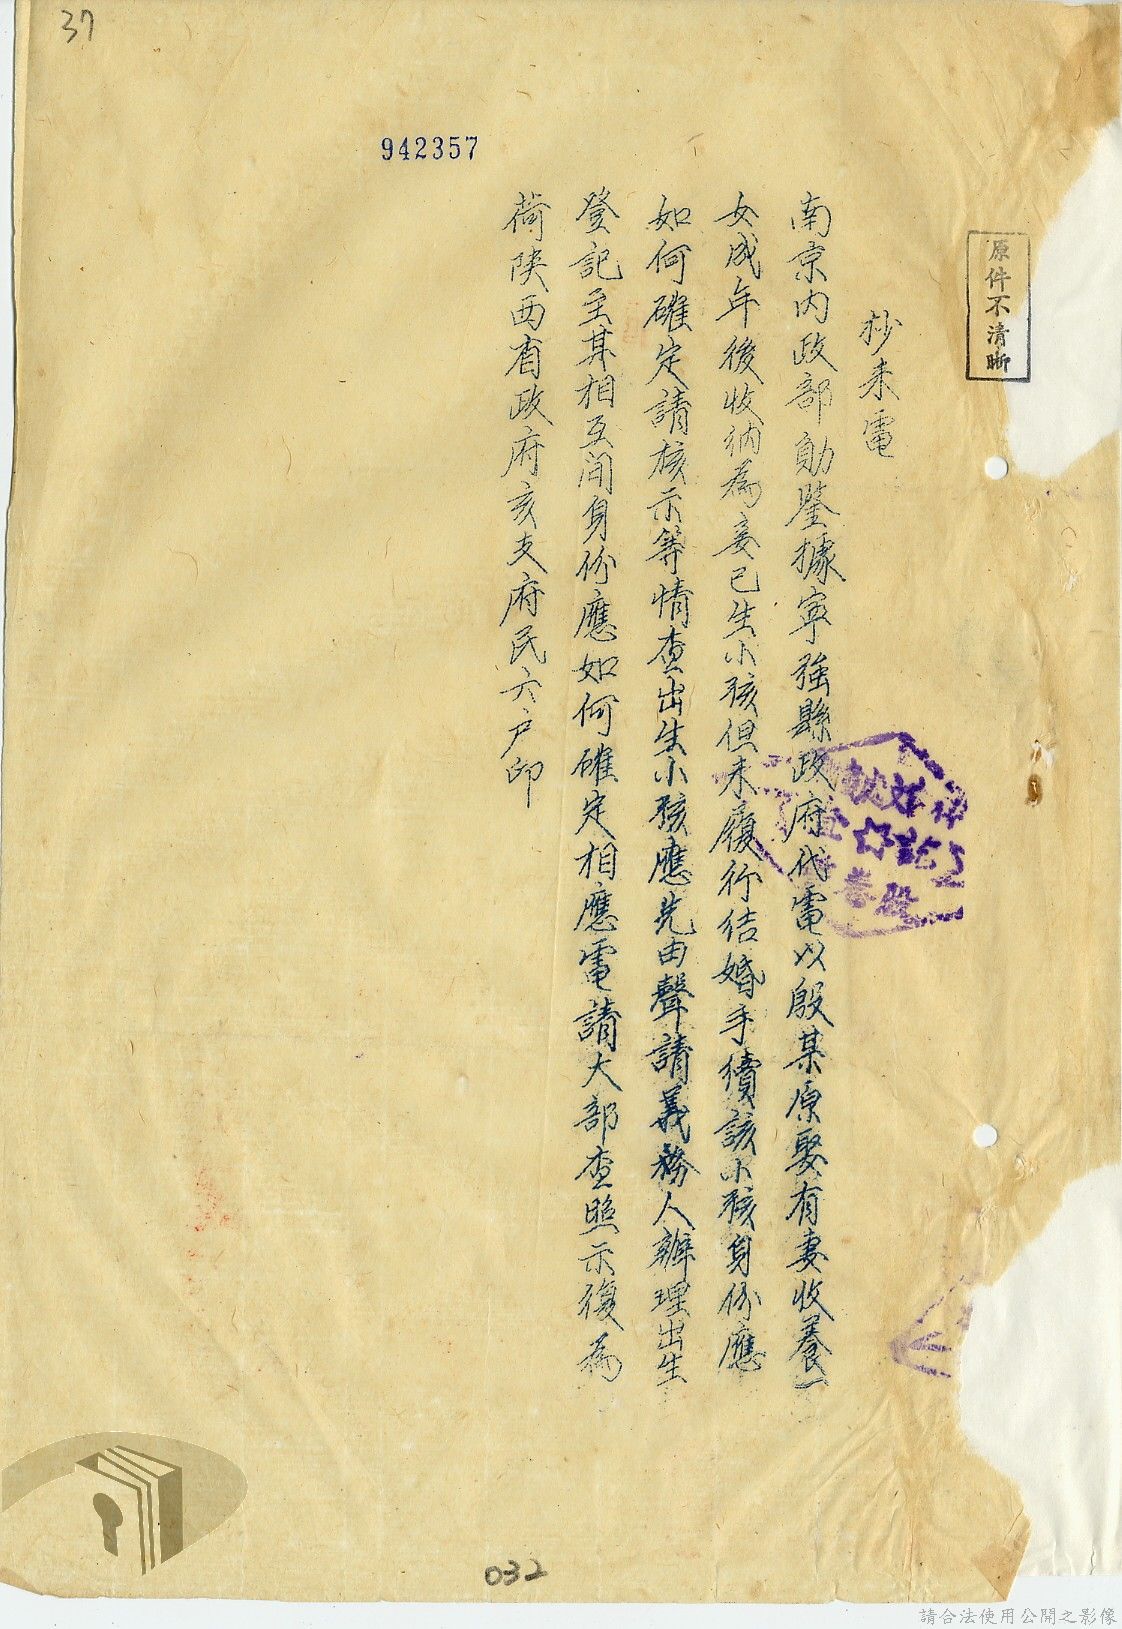 37
942357
原件不清晰
抄来電
南京內政部勛鑒據寧強縣政府代電以殷某原娶有妻收養一
女成年後收納為妾已生小孩但未履行结婚手續該小孩身份應
如何確定請核示等情查出生小孩應先由聲請義務人辦理出生
登記至其相互间身份應如何確定相應電請大部查照示復為
荷陕西省政府亥支府民六户印
032
請合法使用公開之影像